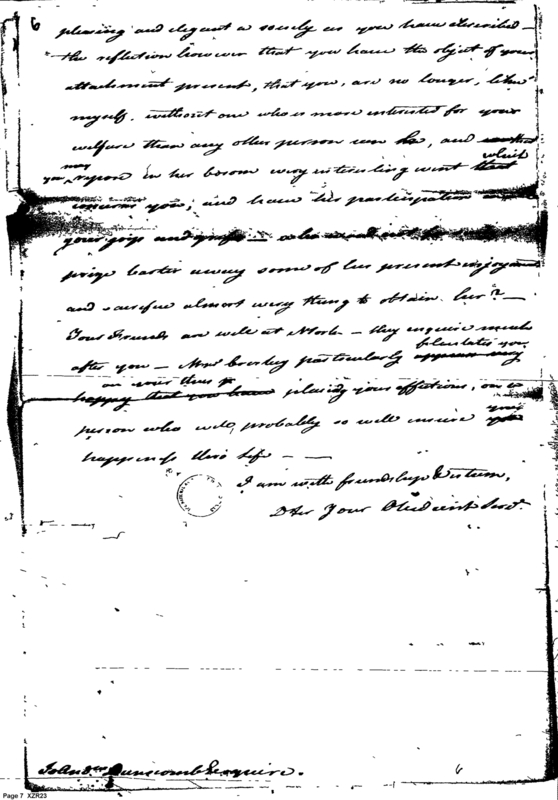 6
pleasing and elegant a society as you have described —
the reflection however that you have the object of your
attachment present, that you, are no longer, like
myself, without one who is more interested for your
welfare than any other person can be, and
may which
you repose in her bosom every interesting event that
concerns you, and have her participation in
your joys and griefs — who would not to
prize barter away some of his present enjoyments
and sacrifice almost every thing to obtain her? —
Your Friends are well at — they enquire much
felicitates you
after you — Mrs particularly appears very
on your thus
happy that you have placing your affections, on a
person who will, probably so well insure your
happiness thro' life — —
I am with friendship & Esteem,
D Sir Your Obedient Servt.
John Dunscomb Esquire.
6
Page 7 XZR23